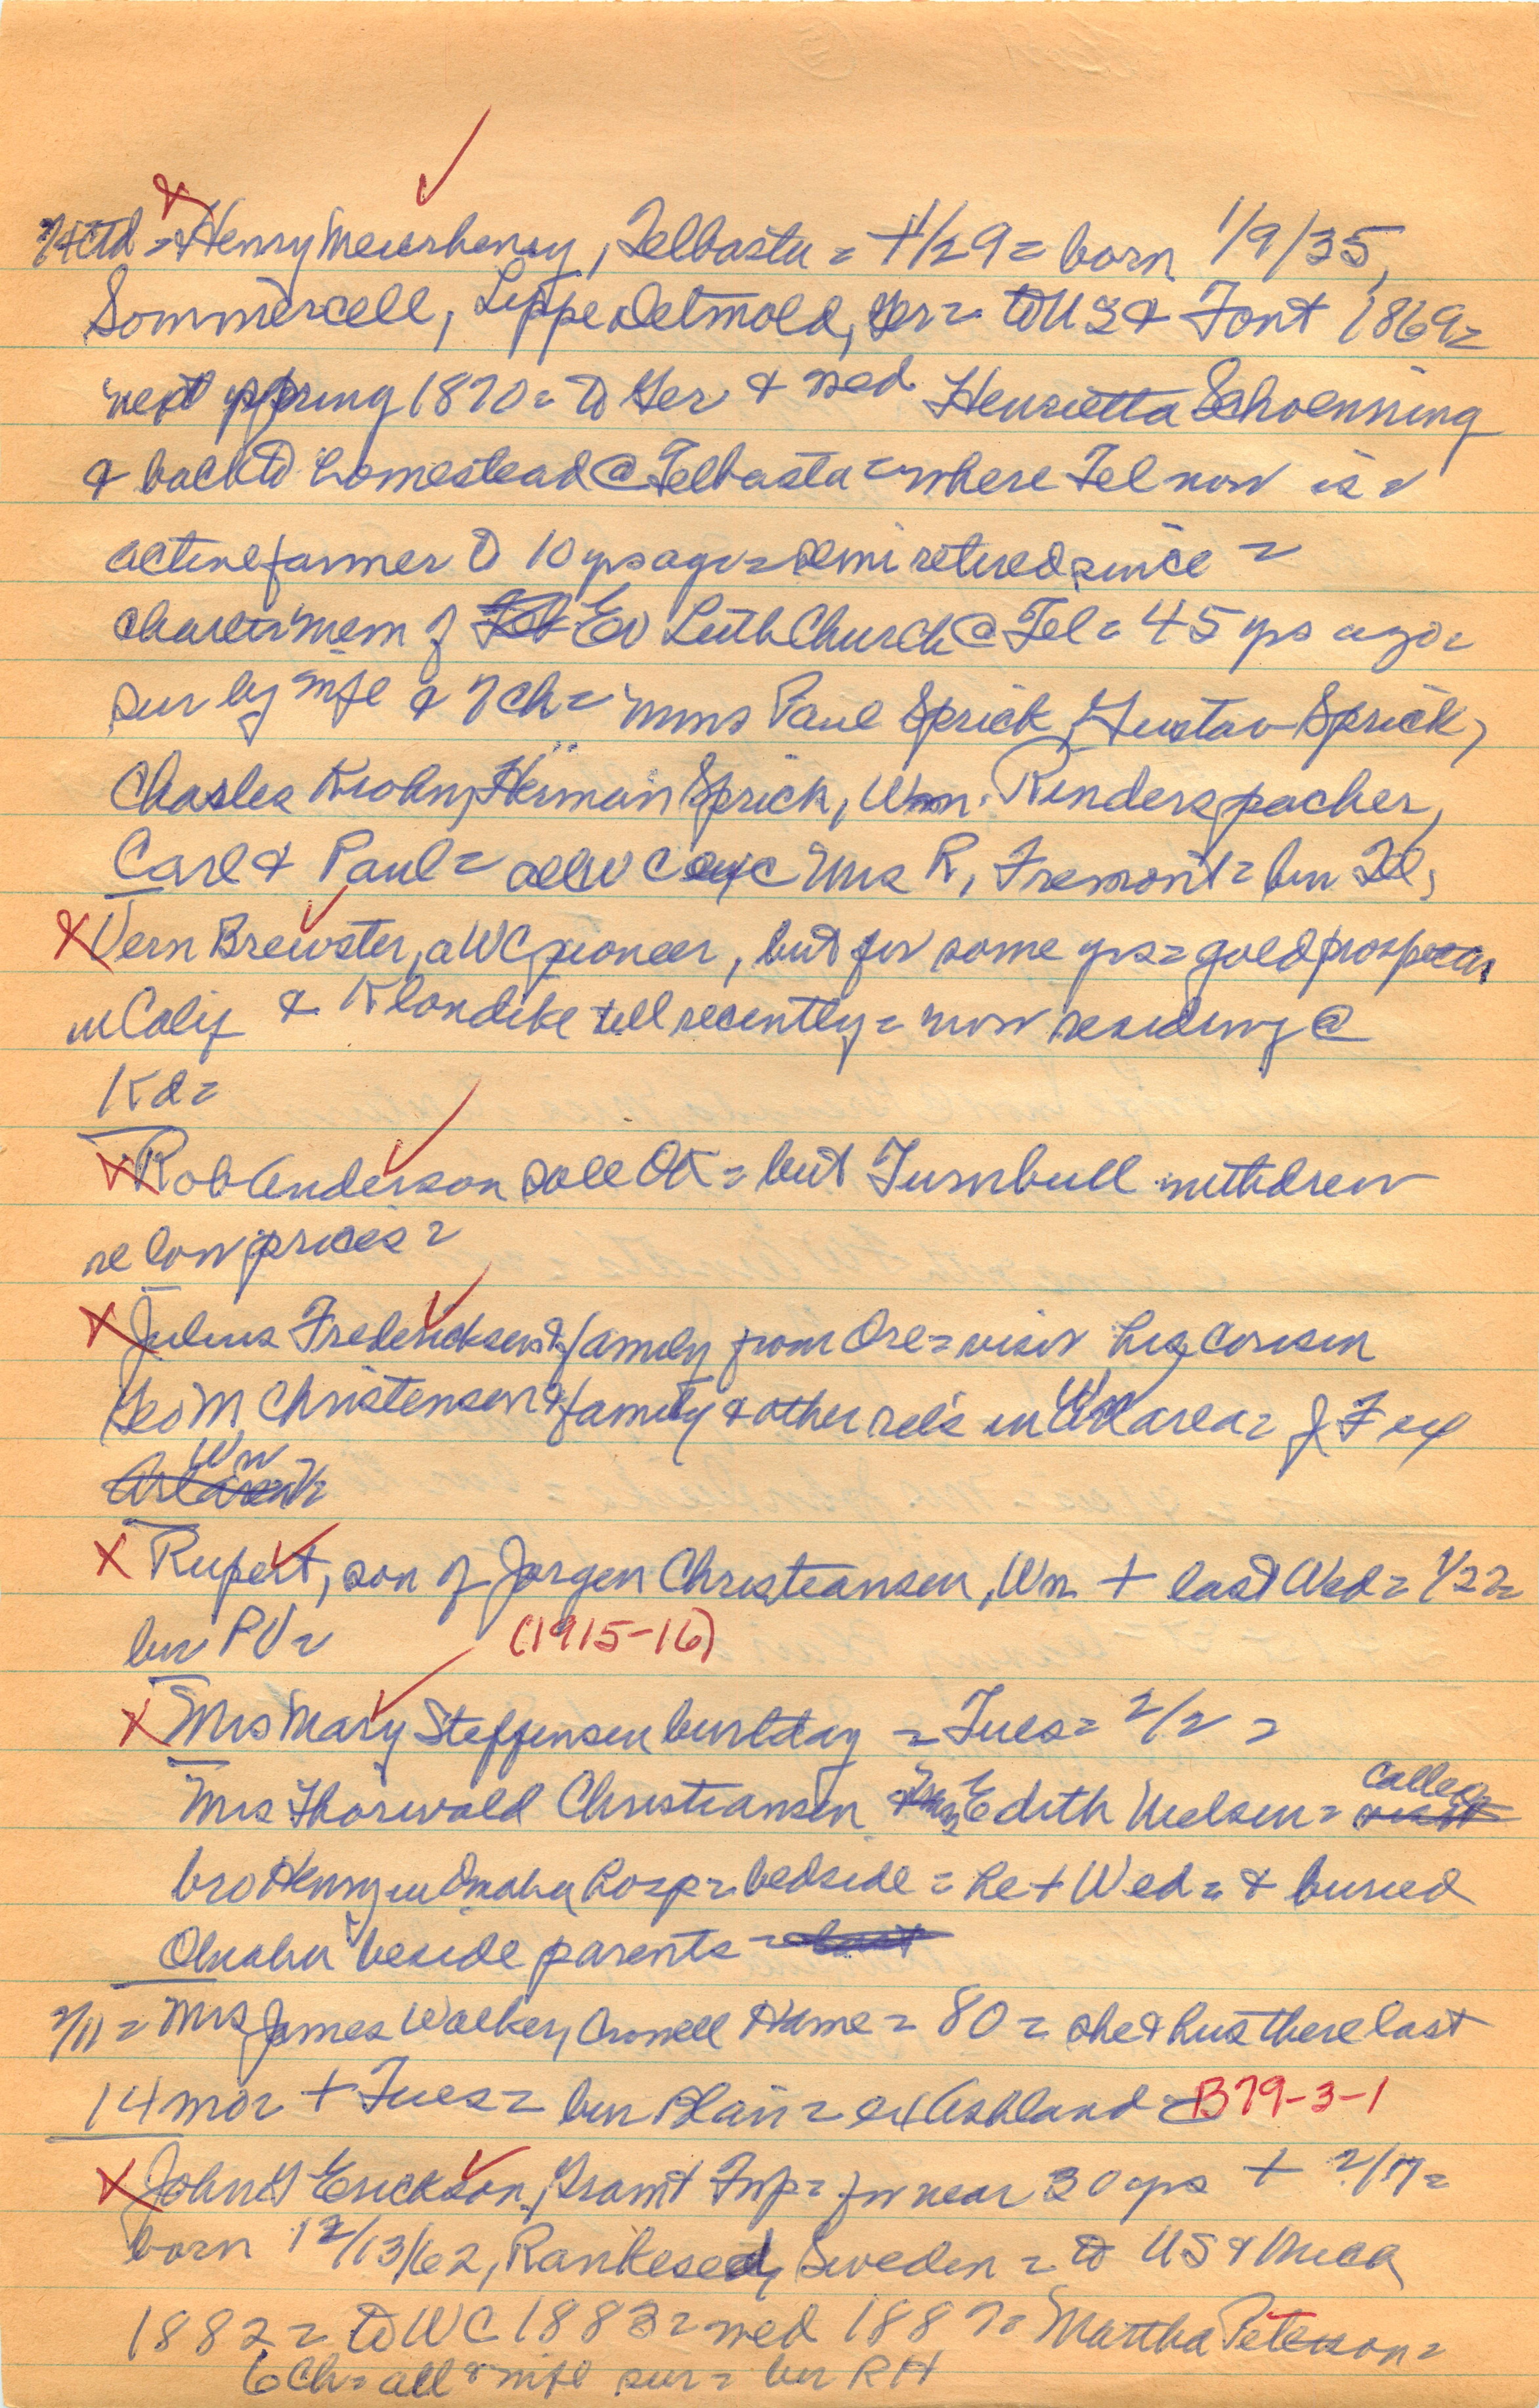 Henry Meierhenry, Telbasta = + 1/29 = born 1/9/35,
Sommersell, Lippe Detmold, Ger = to US & Font 1869 =
next spring 1870 = to Ger & wed Henrietta Schoenning
& back to homestead @ Telbasta = where Tel now is =
active farmer to 10 yrs ago = semi retired since =
charter mem of Ev Luth Church @ Tel = 45 yrs ago =
sur by wife & 7 ch = Mmes Paul Sprick, Gustav Sprick,
Charles Krohn, Herman Sprick, Wm. Rinderspacher,
Carl & Paul = all WC exc Mrs R, Fremont = bur Tel,
X Vern Brewster, a WC pioneer, but for some yrs = gold prospector
in Calif & Klondike till recently = now residing @
Kd =
X Rob Anderson sale OK = but Turnbull withdrew
re low prices =
X Julius Fredericksen & family from Ore = visit his cousin
Geo M Christensen & family & other rels in area = J F ex
Wn
X Rupert, son of Jorgen Christiansen, Wn + last Wed = 1/22 =
bur PV = (1915-16)
X Mrs Mary Steffensen birthday = Tues = 2/2 =
Mrs Thorwald Christiansen Edith Nielsen = called
bro Henry in Omaha hosp = bedside = he + Wed = & buried
Omaha beside parents =
2/11 = Mrs James Walker, Crowell Home = 80 = she & hus there last
14 mos = + Tues = bur Blair = ex Ashland = B79-3-1
X John G Erickson, Grant Twp = for near 30 yrs + 2/17 =
born 12/13/62, Sweden = to US &
1882 = to WC 1883 = wed 1887 = Martha Peterson =
6 Ch = all & wife sur = bur RH